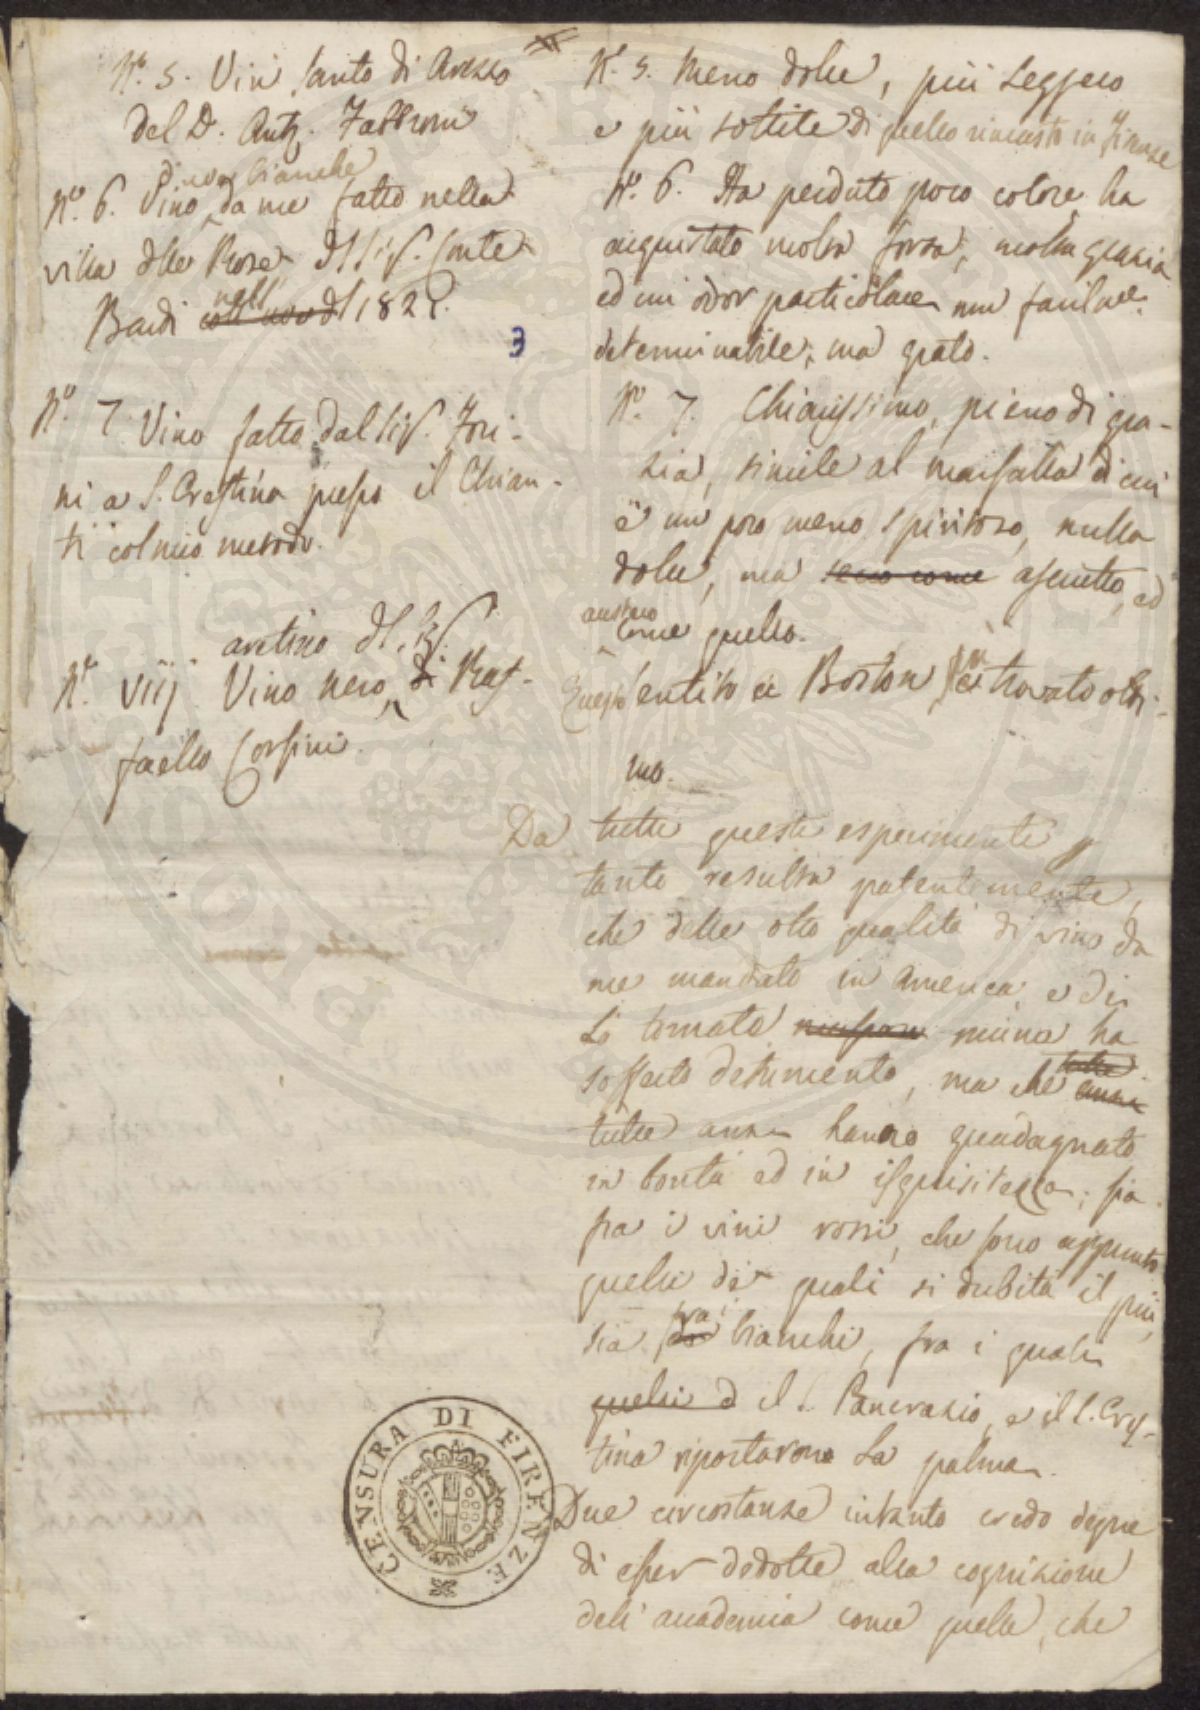 N.º 5. Vin santo di Arezzo
del D. Ant. Fabbroni
d'uve bianche
N.º 6. Vino da me fatto nella
villa delle Rose del Sig. Conte
nell'
Bardi coll'uve del 182
3
N.º 7 Vino fatto dal Sig. Fori-
ni a S. Crestina presso il Chian-
ti col mio metodo.
aretino del Sig.
N.º viij Vino nero di Raf-
faello Corsini
N.º 5. Meno dolce, più leggero
e più sottile di quello rimasto in Firenze
N.º 6. Ha perduto poco colore, ha
acquistato molta forza, molta grazia
ed un odor particolare non facilme.
determinabile; ma grato.
N.º 7. Chiarissimo, pieno di gra-
zia, simile al marsalla di cui
è un poco meno spiritoso, nulla
dolce, ma secco come asciutto, ed
austero
come quello.
Questo sentito a Boston fu trovato otti-
mo.
Da tutti questi esperimenti p
tanto resulta patentemente,
che delle otto qualità di vino da
me mandato in America, e di
là tornato niuna ha
sofferto detrimento, ma che tutte anzi
tutte anzi hanno guadagnato
in bontà ed in isquisitezza; sia
fra i vini rossi, che sono appunto
quelli dei quali si dubita il più,
sia fra i bianchi, fra i quali
quelli d il S. Pancrazio, e il S. Cres-
tina riportarono la palma.
Due circostanze intanto credo degne
di esser dedotte alla cognizione
dell'accademia come quelle, che
CENSURA DI FIRENZE